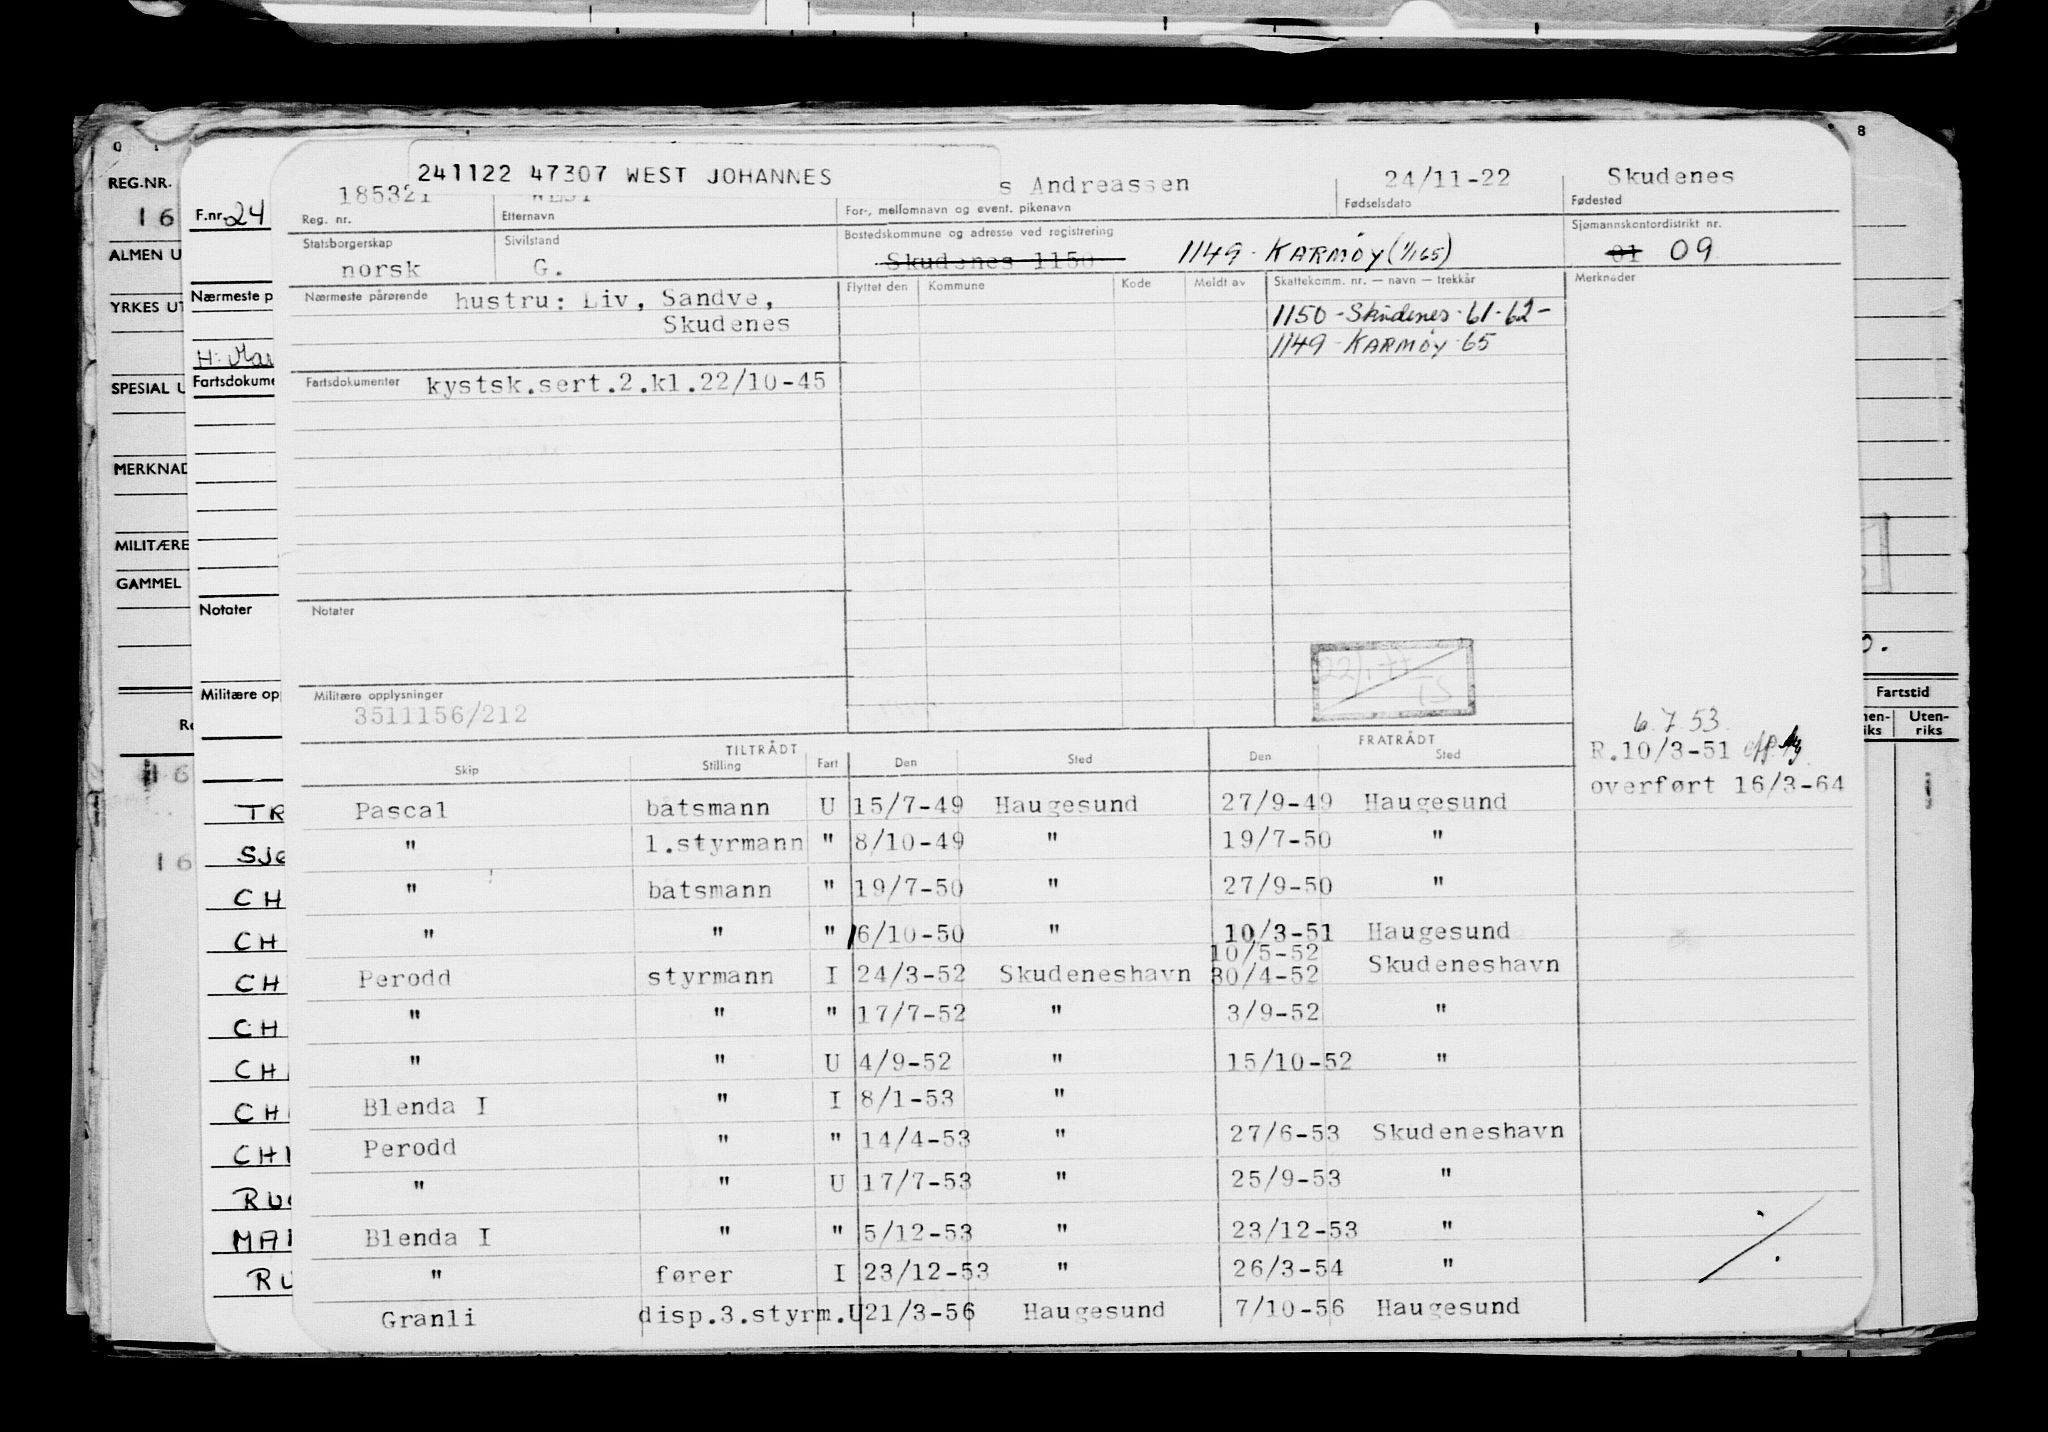 0 8
REG.NR.
16
ALMEN U
YRKES UT
SPECIAL U
MERKNAD
MILITÆRE
GAMMEL
F.nr. 24
Nærmeste p
H: Mar
Fartsdokume
Notater
Militære opp
TR
SJØ
CH
CH
CH
CH
CH
CH
CHI
RU
MA
RU
16
16
241122 47307 WEST JOHANNES
185321 WEST s Andreassen 24/11-22 Skudenes
Reg. nr. Etternavn For-, mellomnavn og event. pikenavn Fødselsdato Fødested
Statsborgerskap Sivilstand Bostedskommune og adresse ved registrering Sjømannskontordistrikt nr.
norsk G. Skudenes 1150 1149 - KARMØY (1/1 65) 01 09
Nærmeste pårørende hustru: Liv, Sandve, Flyttet den Kommune Kode Meldt av Skattekomm. nr. — navn — trekkår Merknader
Skudenes 1150 - Skudenes - 61 - 62 -
1149 - KARMØY - 65
Fartsdokumenter kystsk.sert.2.kl.22/10-45
Notater
22/1-77
TS
Militære opplysninger
3511156/212
6.7.53.
R.10/3-51
overført 16/3-64
TILTRÅDT FRATRÅDT
Skip Stilling Fart Den Sted Den Sted
Pascal båtsmann U 15/7-49 Haugesund 27/9-49 Haugesund
" 1.styrmann " 8/10-49 " 19/7-50 "
" båtsmann " 19/7-50 " 27/9-50 "
" " " 16/10-50 " 10/3-51 Haugesund
10/5-52
Perodd styrmann I 24/3-52 Skudeneshavn 30/4-52 Skudeneshavn
" " " 17/7-52 " 3/9-52 "
" " U 4/9-52 " 15/10-52 "
Blenda I " I 8/1-53 "
Perodd " " 14/4-53 " 27/6-53 Skudeneshavn
" " U 17/7-53 " 25/9-53 "
Blenda I " " 5/12-53 " 23/12-53 "
" fører I 23/12-53 " 26/3-54 "
Granli disp.3.styrm. U 21/3-56 Haugesund 7/10-56 Haugesund
Fartstid
Uten-
riks